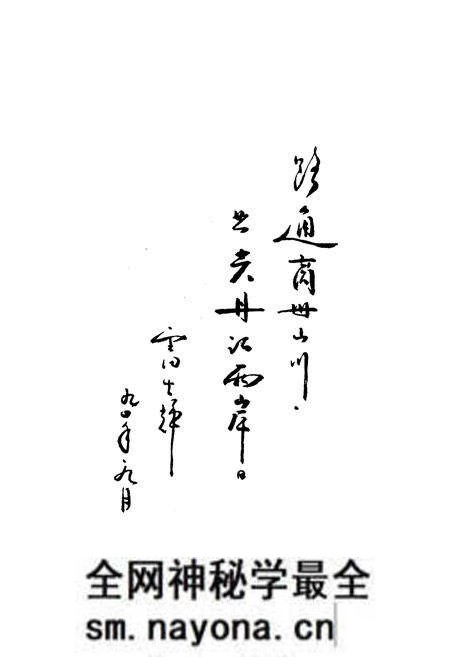 路通商州山川
丹江两岸
九四年九月
全网神秘学最全
sm.nayona.cn